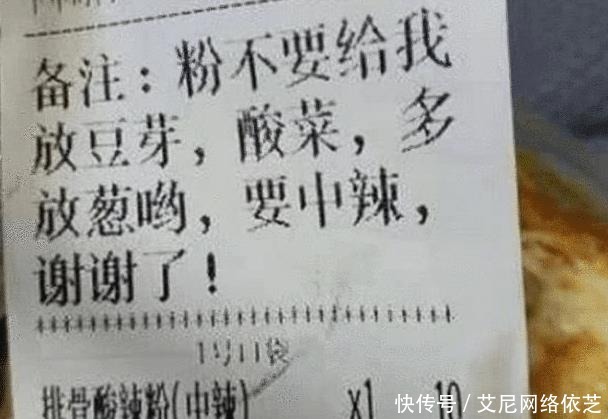 备注：粉不要给我
放豆芽，酸菜，多
放葱哟，要中辣，
谢谢了！
1号口袋
排骨酸辣粉(中辣) x1 10
快传号/艾尼网络依芝